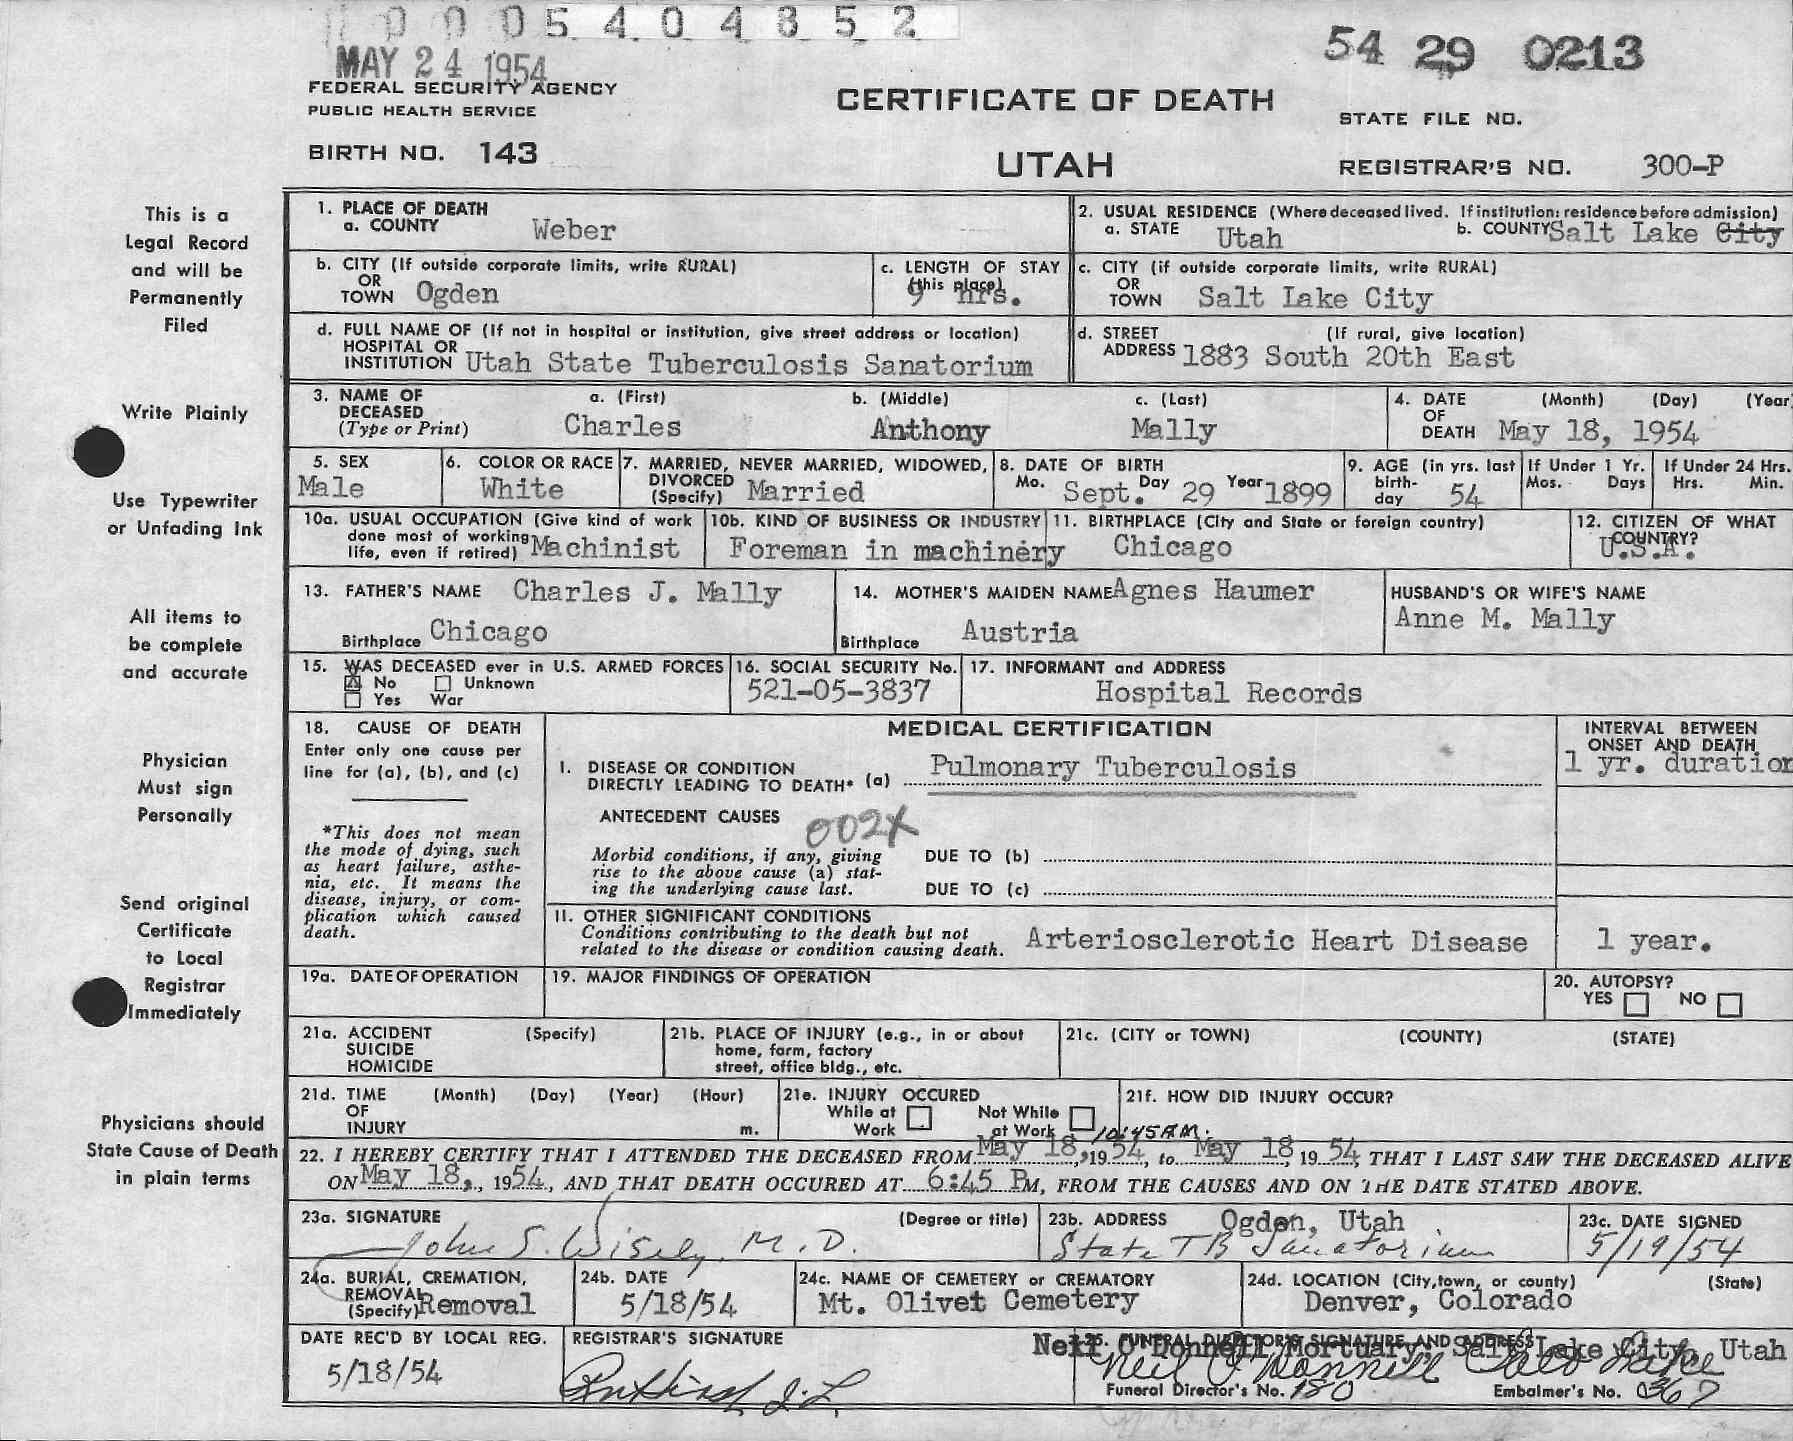 0005404852
MAY 24 1954
54 29 0213
FEDERAL SECURITY AGENCY
PUBLIC HEALTH SERVICE
CERTIFICATE OF DEATH
STATE FILE NO.
BIRTH NO. 143
UTAH
REGISTRAR'S NO. 300-P
This is a
Legal Record
and will be
Permanently
Filed
Write Plainly
Use Typewriter
or Unfading Ink
All items to
be complete
and accurate
Physician
Must sign
Personally
Send original
Certificate
to Local
Registrar
Immediately
Physicians should
State Cause of Death
in plain terms
1. PLACE OF DEATH
a. COUNTY Weber
2. USUAL RESIDENCE (Where deceased lived. If institution: residence before admission)
a. STATE Utah b. COUNTY Salt Lake City
b. CITY (If outside corporate limits, write RURAL)
OR
TOWN Ogden
c. LENGTH OF STAY
(this place)
9 hrs.
c. CITY (if outside corporate limits, write RURAL)
OR
TOWN Salt Lake City
d. FULL NAME OF (If not in hospital or institution, give street address or location)
HOSPITAL OR
INSTITUTION Utah State Tuberculosis Sanatorium
d. STREET (If rural, give location)
ADDRESS 1883 South 20th East
3. NAME OF
DECEASED
(Type or Print)
a. (First) b. (Middle) c. (Last)
Charles Anthony Mally
4. DATE (Month) (Day) (Year)
OF
DEATH May 18, 1954
5. SEX
Male
6. COLOR OR RACE
White
7. MARRIED, NEVER MARRIED, WIDOWED,
DIVORCED
(Specify) Married
8. DATE OF BIRTH
Mo. Sept. Day 29 Year 1899
9. AGE (in yrs. last
birth-
day 54
If Under 1 Yr.
Mos. Days
If Under 24 Hrs.
Hrs. Min.
10a. USUAL OCCUPATION (Give kind of work
done most of working
life, even if retired) Machinist
10b. KIND OF BUSINESS OR INDUSTRY
Foreman in machinery
11. BIRTHPLACE (City and State or foreign country)
Chicago
12. CITIZEN OF WHAT
COUNTRY?
U.S.A.
13. FATHER'S NAME Charles J. Mally
Birthplace Chicago
14. MOTHER'S MAIDEN NAME Agnes Haumer
Birthplace Austria
HUSBAND'S OR WIFE'S NAME
Anne M. Mally
15. WAS DECEASED ever in U.S. ARMED FORCES
X No Unknown
Yes War
16. SOCIAL SECURITY No.
521-05-3837
17. INFORMANT and ADDRESS
Hospital Records
18. CAUSE OF DEATH
Enter only one cause per
line for (a), (b), and (c)
*This does not mean
the mode of dying, such
as heart failure, asthe-
nia, etc. It means the
disease, injury, or com-
plication which caused
death.
MEDICAL CERTIFICATION
I. DISEASE OR CONDITION
DIRECTLY LEADING TO DEATH* (a) Pulmonary Tuberculosis
ANTECEDENT CAUSES
002X
Morbid conditions, if any, giving
rise to the above cause (a) stat-
ing the underlying cause last.
DUE TO (b)
DUE TO (c)
II. OTHER SIGNIFICANT CONDITIONS
Conditions contributing to the death but not
related to the disease or condition causing death.
Arteriosclerotic Heart Disease
INTERVAL BETWEEN
ONSET AND DEATH
1 yr. duration
1 year.
19a. DATE OF OPERATION
19. MAJOR FINDINGS OF OPERATION
20. AUTOPSY?
YES NO
21a. ACCIDENT (Specify)
SUICIDE
HOMICIDE
21b. PLACE OF INJURY (e.g., in or about
home, farm, factory
street, office bldg., etc.
21c. (CITY or TOWN) (COUNTY) (STATE)
21d. TIME (Month) (Day) (Year) (Hour)
OF
INJURY m.
21e. INJURY OCCURED
While at Work
Not While at Work
21f. HOW DID INJURY OCCUR?
10:45 A.M.
22. I HEREBY CERTIFY THAT I ATTENDED THE DECEASED FROM May 18, 19 54, to May 18, 19 54, THAT I LAST SAW THE DECEASED ALIVE
ON May 18, 19 54, AND THAT DEATH OCCURED AT 6:45 P M, FROM THE CAUSES AND ON THE DATE STATED ABOVE.
23a. SIGNATURE (Degree or title)
John S. Wisely, M.D.
23b. ADDRESS Ogden, Utah
State TB Sanatorium
23c. DATE SIGNED
5/19/54
24a. BURIAL, CREMATION,
REMOVAL
(Specify) Removal
24b. DATE
5/18/54
24c. NAME OF CEMETERY or CREMATORY
Mt. Olivet Cemetery
24d. LOCATION (City, town, or county) (State)
Denver, Colorado
DATE REC'D BY LOCAL REG.
5/18/54
REGISTRAR'S SIGNATURE
25. FUNERAL DIRECTOR'S SIGNATURE AND ADDRESS
Neil O'Donnell Mortuary, Salt Lake City, Utah
Neil O'Donnell Salt Lake
Funeral Director's No. 180 Embalmer's No. 367